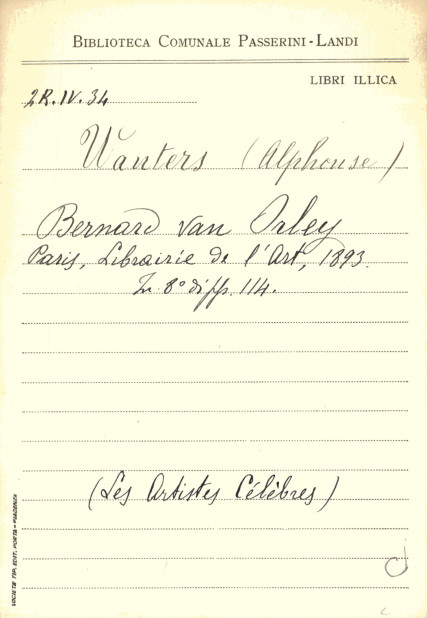 BIBLIOTECA COMUNALE PASSERINI-LANDI
LIBRI ILLICA
2R.IV.34
Wauters (Alphonse)
Bernard van Orley
Paris, Librairie de l'Art, 1893.
In 8° di pp. 114.
(Les Artistes Célèbres)
SOCIETÀ TIP. EDIT. PORTA - PIACENZA